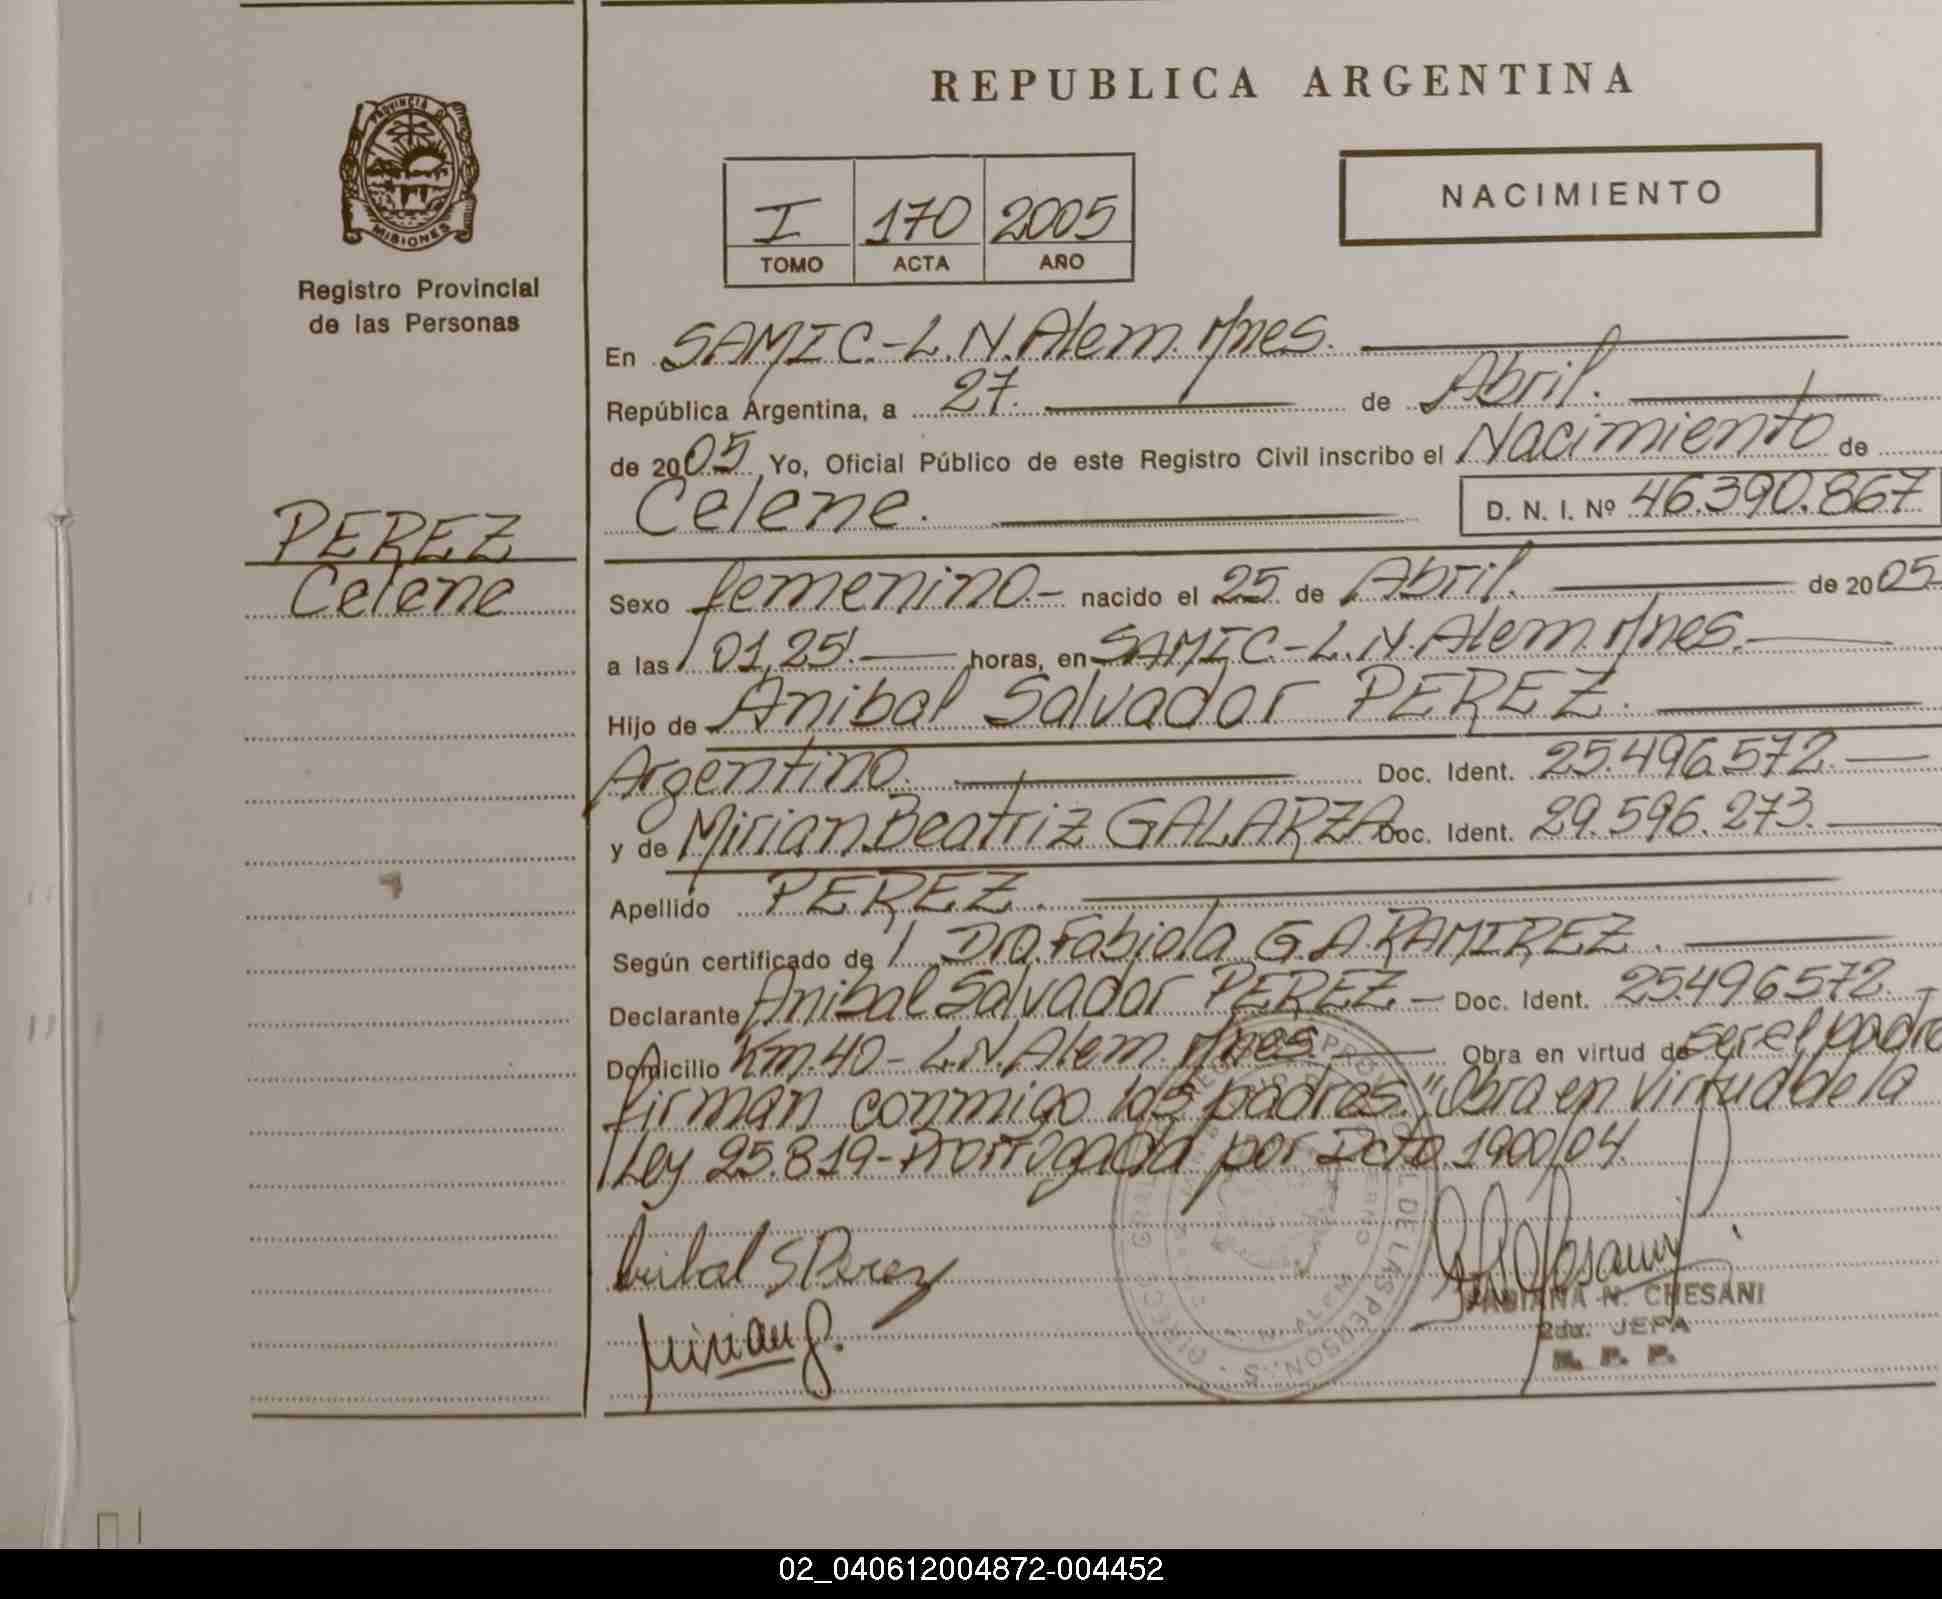 REPUBLICA ARGENTINA
PROVINCIA DE MISIONES
Registro Provincial
de las Personas
I 170 2005
TOMO ACTA AÑO
NACIMIENTO
PEREZ
Celene
En SAMIC.-L.N.Alem. Mnes.
República Argentina, a 27. de Abril.
de 2005 Yo, Oficial Público de este Registro Civil inscribo el Nacimiento de
Celene. D. N. I. Nº 46.390.867
Sexo femenino.- nacido el 25 de Abril. de 2005
a las 01,25'. horas, en SAMIC.-L.N.Alem. Mnes.
Hijo de Anibal Salvador PEREZ.
Argentino. Doc. Ident. 25.496.572.
y de Mirian Beatriz GALARZA Doc. Ident. 29.596.273.
Apellido PEREZ.
Según certificado de Dra. Fabiola G.A. RAMIREZ.
Declarante Anibal Salvador PEREZ.- Doc. Ident. 25.496.572.-
Domicilio Km.40- L.N.Alem. Mnes. Obra en virtud de ser el padre
firman conmigo los padres." Obra en virtud de la
Ley 25.819-Prorrogada por Dcto. 1900/04.
Anibal S Perez
Mirian G.
FABIANA N. CHESANI
2da. JEFA
R. P. P.
02_040612004872-004452